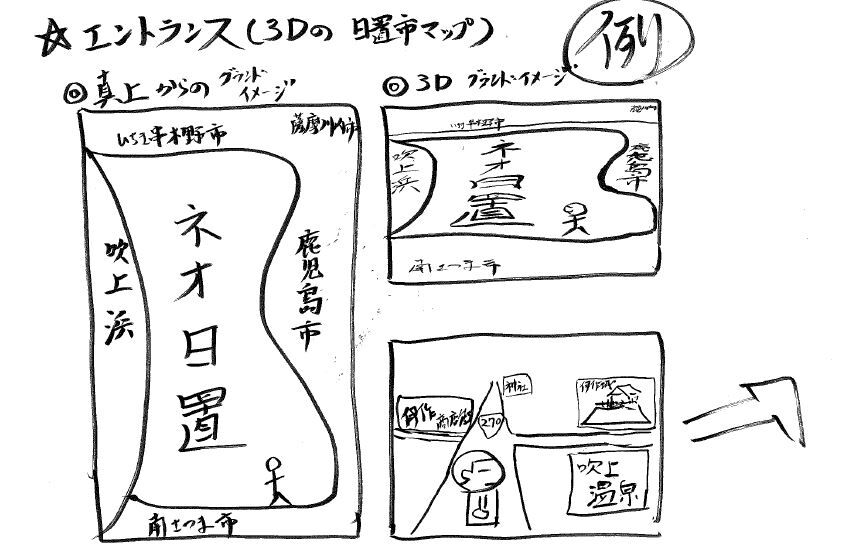 ☆ エントランス(3Dの 日置市マップ)
例
◎ 真上からの ブランドイメージ
いちき串木野市
薩摩川内市
吹上浜
ネオ日置
鹿児島市
南さつま市
◎ 3D ブランドイメージ
吹上浜
ネオ日置
鹿児島市
南さつま市
神社
伊作城
伊作商店街
270
吹上
温泉